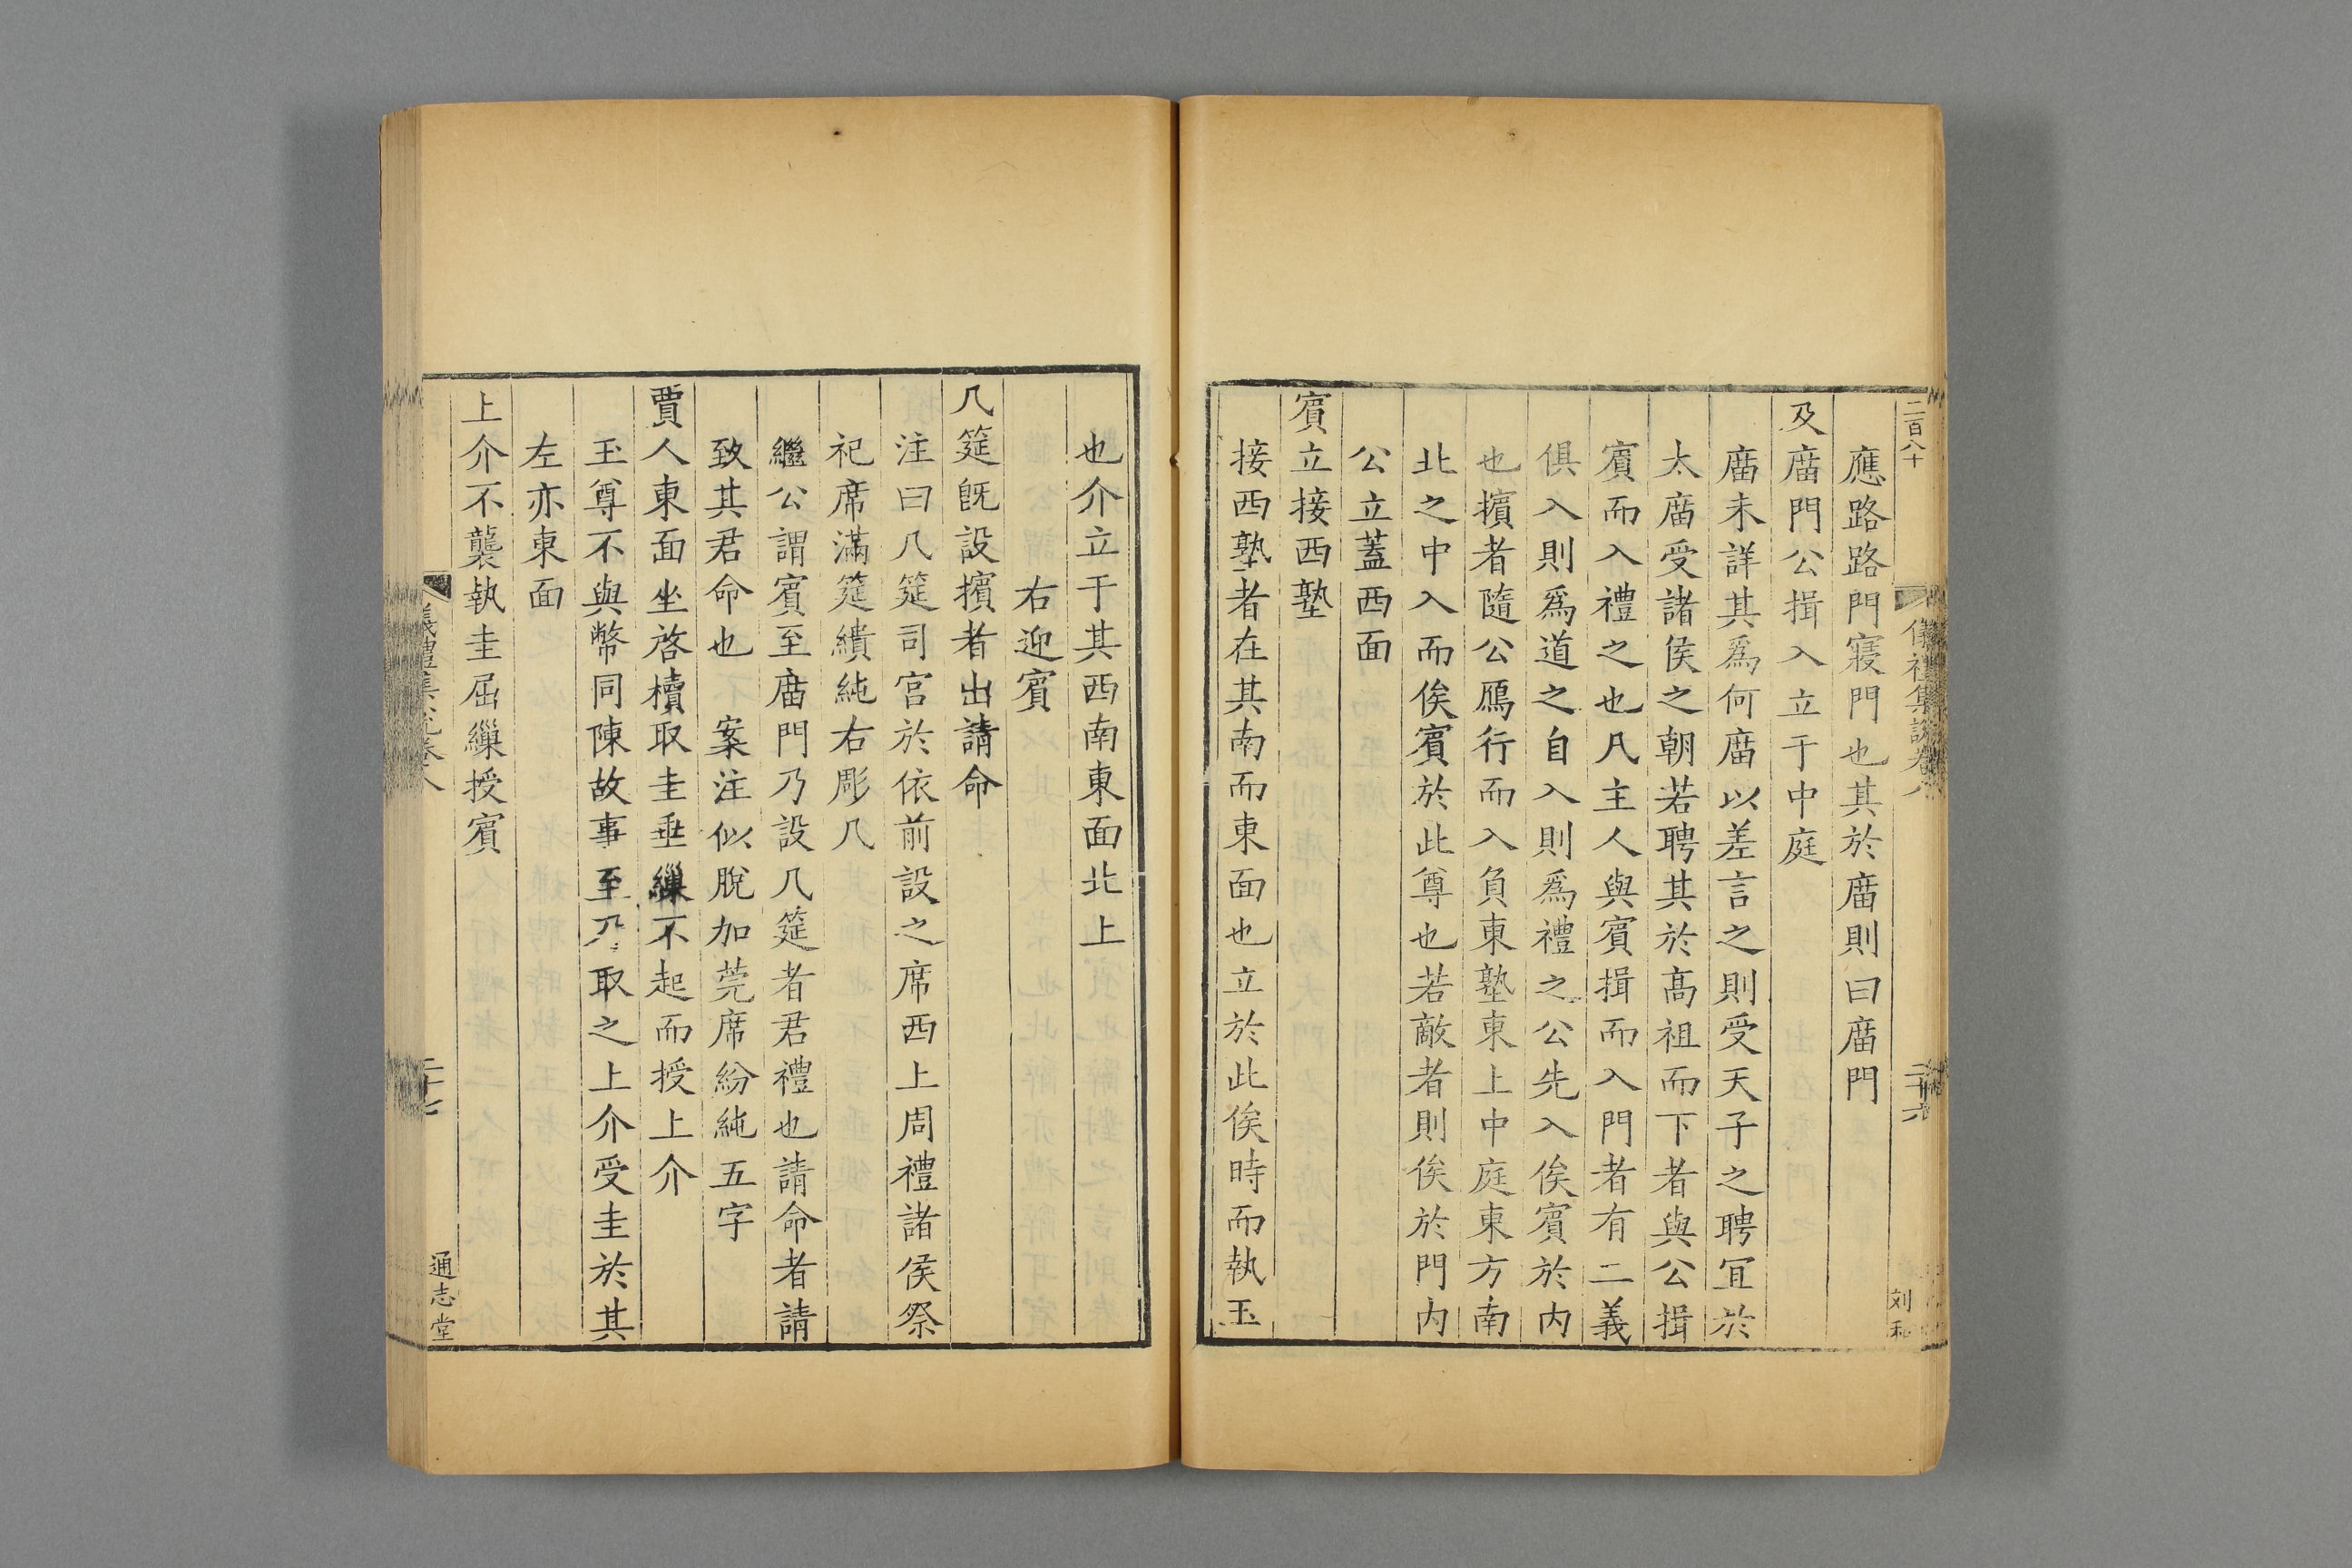 二百八十
儀禮集說卷八
二十六
刘
應路路門寢門也其於廟則曰廟門
及廟門公揖入立于中庭
廟未詳其爲何廟以差言之則受天子之聘冝於
太廟受諸侯之朝若聘其於髙祖而下者與公揖
賓而入禮之也凡主人與賓揖而入門者有二義
俱入則爲道之自入則爲禮之公先入俟賓於内
也擯者隨公鴈行而入負東塾東上中庭東方南
北之中入而俟賓於此尊也若敵者則俟於門内
公立蓋西面
賓立接西塾
接西塾者在其南而東面也立於此俟時而執玉
也介立于其西南東面北上
右迎賓
几筵旣設擯者出請命
注曰几筵司宫於依前設之席西上周禮諸侯祭
祀席滿筵繢純右彫几
繼公謂賓至廟門乃設几筵者君禮也請命者請
致其君命也 案注似脫加莞席紛純五字
賈人東面坐啓櫝取圭垂繅不起而授上介
玉尊不與幣同陳故事至乃取之上介受圭於其
左亦東面
上介不襲執圭屈繅授賓
儀禮集說卷八
二十七
通志堂